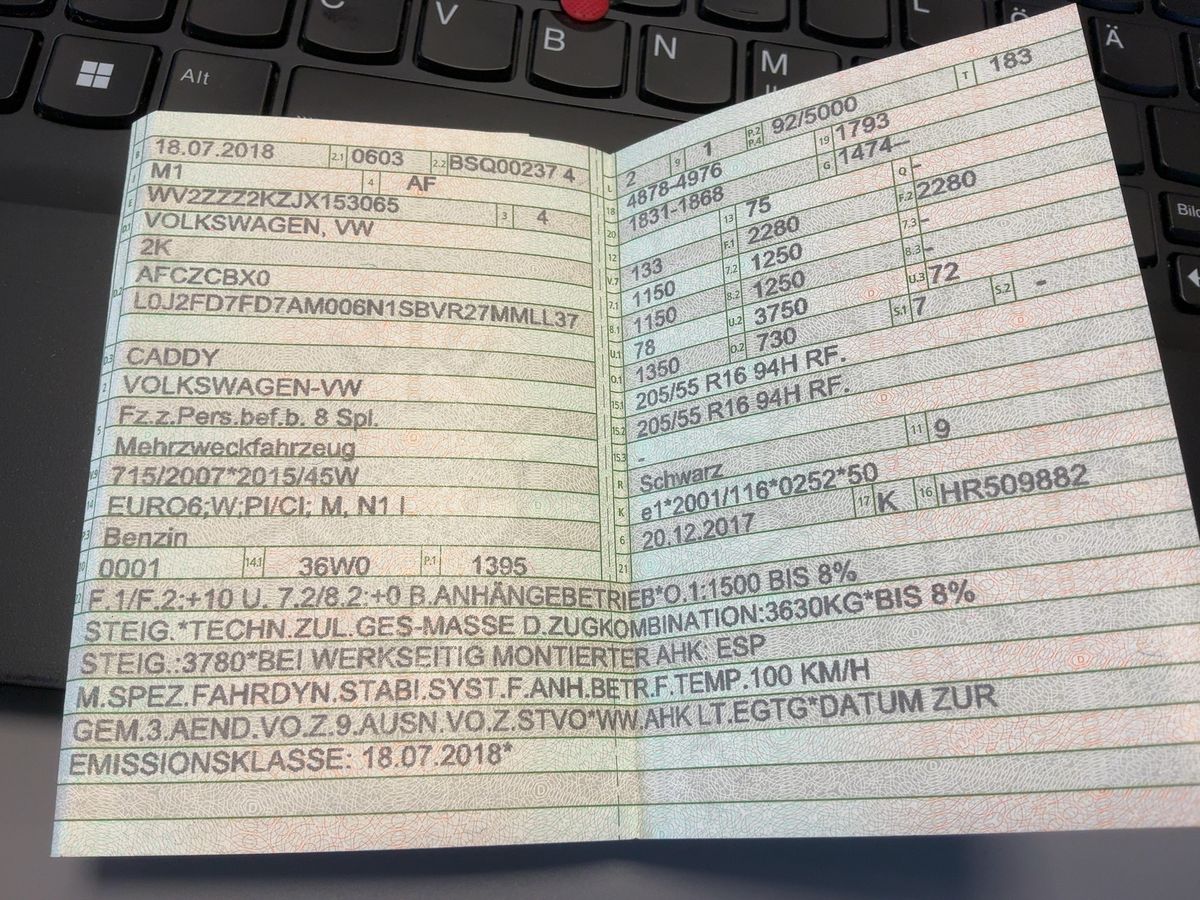 C V B N M L Ö Ä
Alt
Bild
B 18.07.2018 2.1 0603 2.2 BSQ00237 4
J M1 4 AF
E WV2ZZZ2KZJX153065 3 4
D.1 VOLKSWAGEN, VW
2K
AFCZCBX0
D.2 L0J2FD7FD7AM006N1SBVR27MMLL37
D.3 CADDY
2 VOLKSWAGEN-VW
Fz.z.Pers.bef.b. 8 Spl.
5 Mehrzweckfahrzeug
715/2007*2015/45W
14 EURO6;W;PI/CI; M, N1 I
P.3 Benzin
10 0001 14.1 36W0 P.1 1395
L 2 9 1 P.2 P.4 92/5000 T 183
18 4878-4976 19 1793
20 1831-1868 G 1474--
12 13 75 Q -
V.7 133 F.1 2280 F.2 2280
7.1 1150 7.2 1250 7.3 -
8.1 1150 8.2 1250 8.3 -
U.1 78 U.2 3750 U.3 72
O.1 1350 O.2 730 S.1 7 S.2 -
15.1 205/55 R16 94H RF.
15.2 205/55 R16 94H RF.
15.3 -
R Schwarz 11 9
K e1*2001/116*0252*50
6 20.12.2017 17 K 16 HR509882
21
22 F.1/F.2:+10 U. 7.2/8.2:+0 B.ANHÄNGEBETRIEB*O.1:1500 BIS 8%
STEIG.*TECHN.ZUL.GES-MASSE D.ZUGKOMBINATION:3630KG*BIS 8%
STEIG.:3780*BEI WERKSEITIG MONTIERTER AHK: ESP
M.SPEZ.FAHRDYN.STABI.SYST.F.ANH.BETR.F.TEMP.100 KM/H
GEM.3.AEND.VO.Z.9.AUSN.VO.Z.STVO*WW.AHK LT.EGTG*DATUM ZUR
EMISSIONSKLASSE: 18.07.2018*